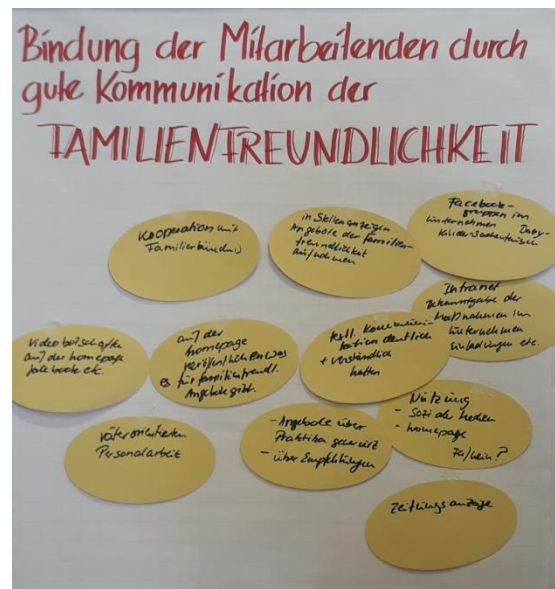 Bindung der Mitarbeitenden durch
gute Kommunikation der
FAMILIENFREUNDLICHKEIT
Kooperation mit
Familienbündnis
in Stellenanzeigen
Angebote der Familien-
freundlichkeit
aufnehmen
Facebook-
gruppen im
Unternehmen Baby-
Intranet
Bekanntgabe der
Maßnahmen im
Unternehmen
Einladungen etc.
Videobotschaften
auf der homepage
facebook etc.
auf der
homepage
veröffentlichen was
es für familienfreundl.
Angebote gibt.
Kommuni-
kation deutlich
+ verständlich
halten
Nutzung
- Soziale Medien
- homepage
Ja/Nein?
väterorientierten
Personalarbeit
- Angebote über
Praktika
- über Empfehlungen
Zeitungsanzeige